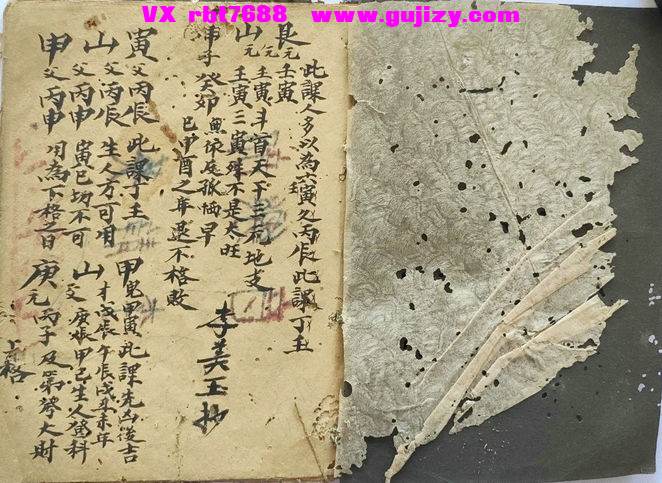 VX rbt7688 www.gujizy.com
此課人多以為六寅久丙辰此課丁主
艮元壬寅
壬寅斗首天干三元地支
山元壬寅三寅殊不是太旺
癸卯
巳申酉之年退不格敗
李美玉抄
寅父丙辰此課丁主
山父丙辰生人方可用
父丙申寅巳切不可
申父丙申用為下格之日
甲鬼甲寅此課先凶後吉
才戊辰午辰戌未年
山父庚辰甲己生人登科
庚元丙子及第發大財
上格